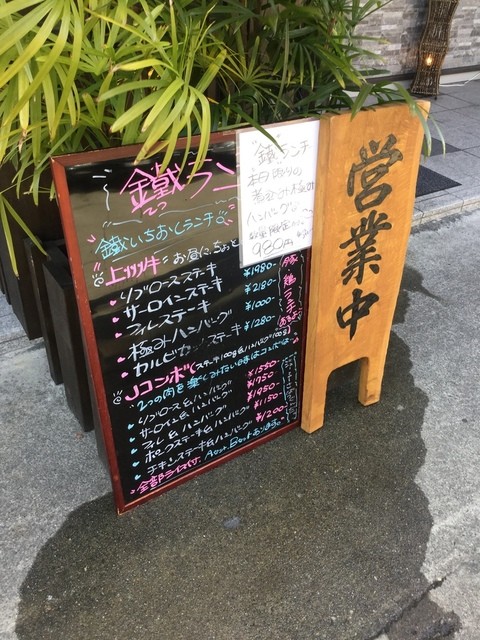 鐵ラン
てつ
鐵いちおしランチ
上ツ牛 お昼に、ちょっと
リブロースステーキ ¥1980-
サーロインステーキ ¥2180-
フィレステーキ
極みハンバーグ ¥1000-
カルビカットステーキ ¥1280-
Jコンボ(ステーキ100g&ハンバーグ100g)
2つの肉を楽しみたい日はコレで
リブロース&ハンバーグ ¥1550-
サーロイン&ハンバーグ ¥1750-
フィレ&ハンバーグ ¥1950-
ポークステーキ&ハンバーグ ¥1150-
チキンステーキ&ハンバーグ ¥1200-
全部ライス付 Aセット、Bセットあります
"鐵"ランチ
本日
ハンバーグ
数量限定
980円
営業中